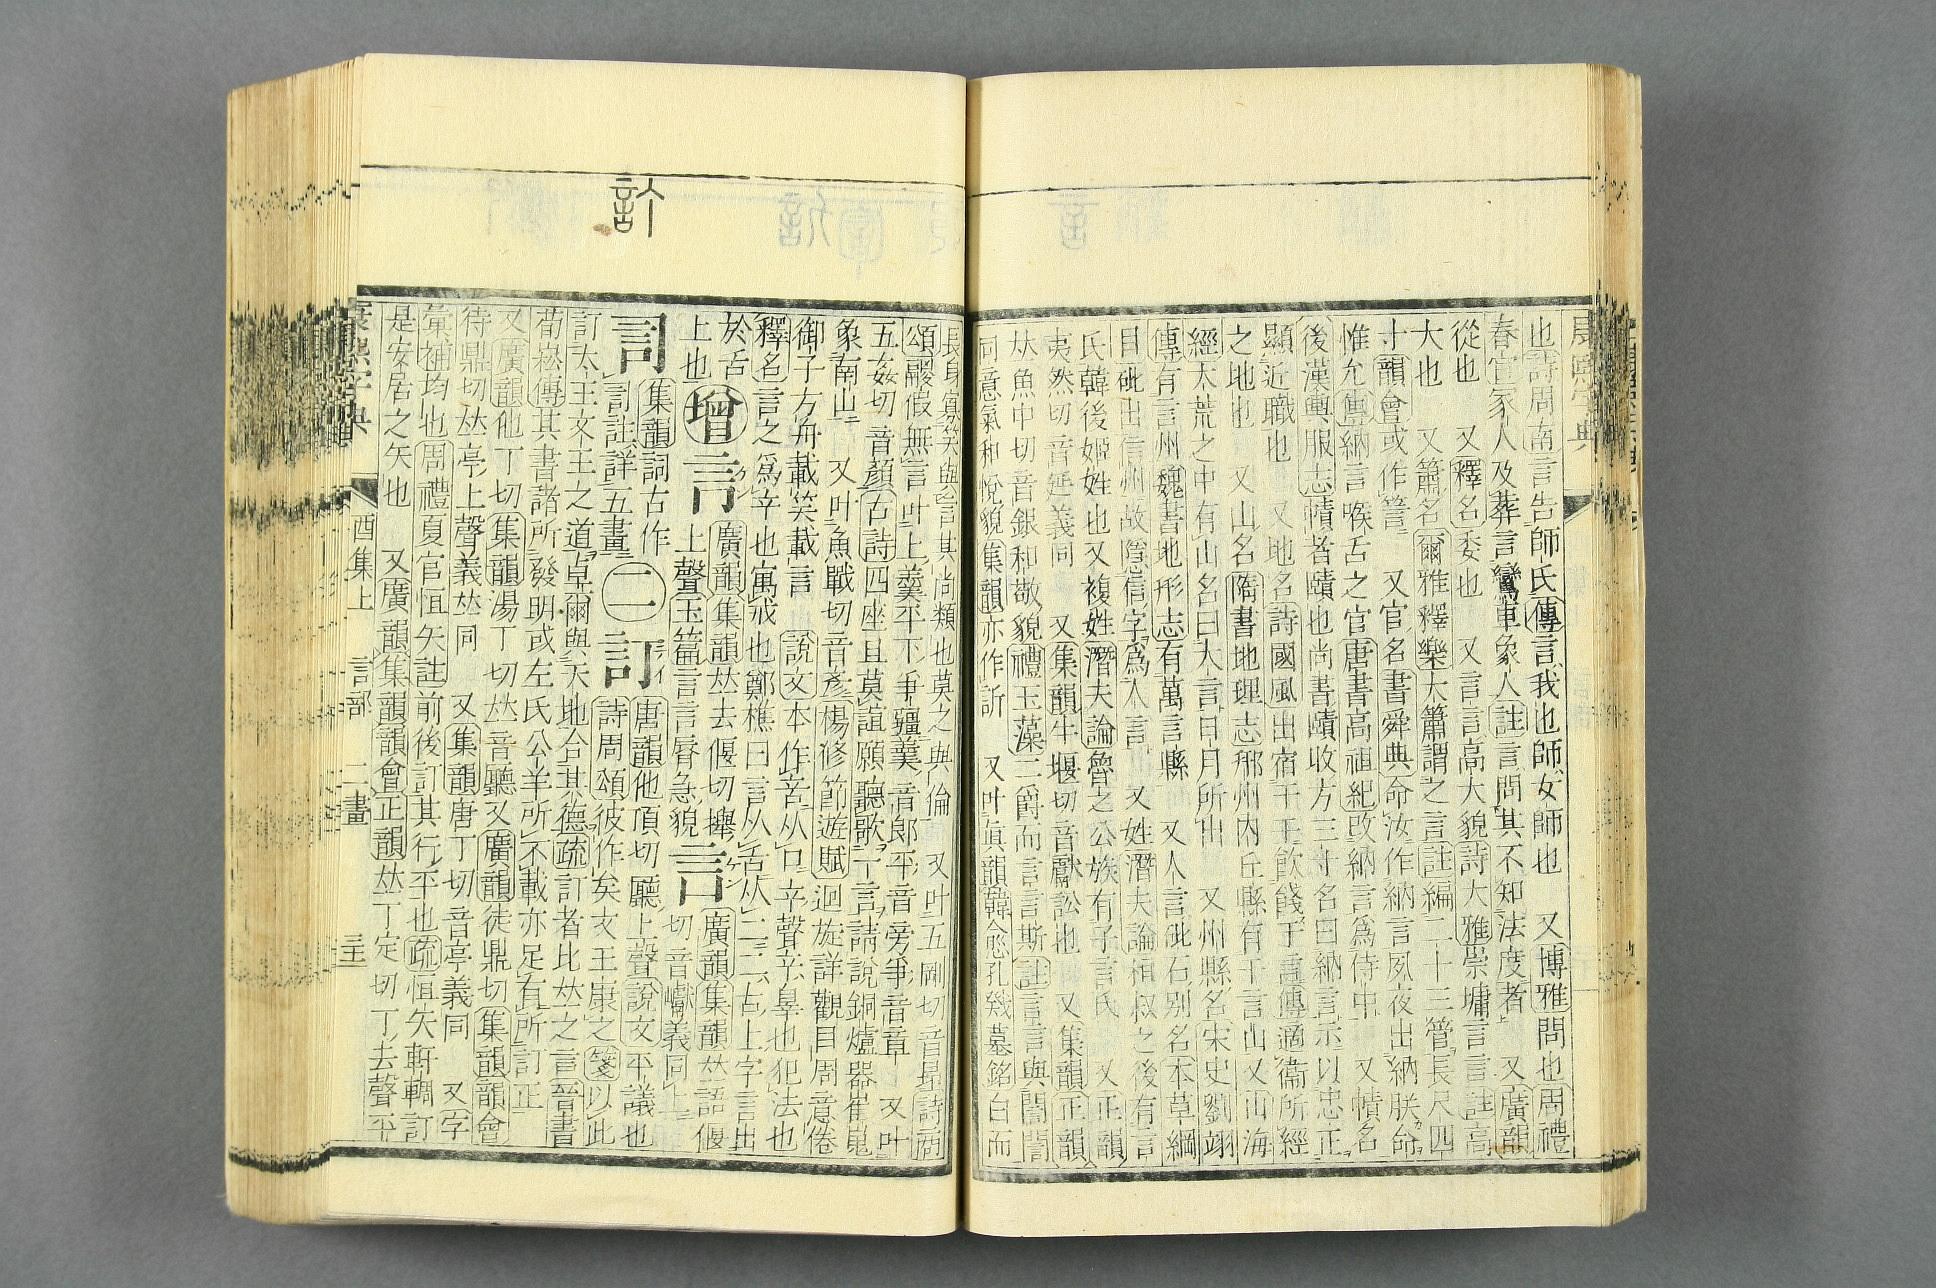 也詩周南言告師氏傳言我也師女師也 又博雅問也周禮
春官冢人及葬言鸞車象人註言問其不知法度者 又廣韻
從也 又釋名委也 又言言高大貌詩大雅崇墉言言註高
大也 又簫名爾雅釋樂大簫謂之言註編二十三管長尺四
寸韻會或作䇾 又官名書舜典命汝作納言夙夜出納朕命
惟允傳納言喉舌之官唐書高祖紀改納言爲侍中 又幘名
後漢輿服志幘者賾也尚書賾收方三寸名曰納言示以忠正
顯近職也 又地名詩國風出宿于干飮餞于言傳適衞所經
之地也 又山名隋書地理志邢州內丘縣有干言山又山海
經大荒之中有山名曰大言日月所出 又州縣名宋史劉翊
傳有言州魏書地形志有萬言縣 又人言砒石别名本草綱
目砒出信州故隱信字爲人言 又姓潛夫論桓叔之後有言
氏韓後姬姓也又複姓潛夫論魯之公族有子言氏 又正韻
夷然切音延義同 又集韻牛堰切音獻訟也 又集韻正韻
𠀤魚巾切音銀和敬貌禮玉藻二爵而言言斯註言言與誾誾
同意氣和悅貌集韻亦作訢 又叶眞韻韓愈孔戣墓銘白而
長身寡笑與言其尚類也莫之與倫 又叶五剛切音昂詩商
頌鬷假無言叶上羹平下爭疆羹音郞平音旁爭音章 又叶
五姦切音顏古詩四座且莫諠願聽歌一言請說銅爐器崔嵬
象南山 又叶魚戰切音彥楊修節遊賦迴旋詳觀目周意倦
御于方舟載笑載言 說文本作䇂从口䇂聲䇂辠也犯法也
釋名言之爲䇂也寓戒也鄭樵曰言从舌从二二古上字言出
於舌上也 增 言 廣韻集韻𠀤去偃切攑上聲玉篇言言脣急貌
言 廣韻集韻𠀤語偃切音巘義同上
訁 集韻詞古作訁註詳五畫
二 訂 唐韻他頂切聽上聲說文平議也詩周頌彼作矣文王康之箋以此
訂太王文王之道卓爾與天地合其德疏訂者比𠀤之言晉書
荀崧傳其書諸所發明或左氏公羊所不載亦足有所訂正
又廣韻他丁切集韻湯丁切𠀤音聽又廣韻徒鼎切集韻韻會
待鼎切𠀤亭上聲義𠀤同 又集韻唐丁切音亭義同 又字
彙補均也周禮夏官恒矢註前後訂其行平也疏恒矢軒輖訂
是安居之矢也 又廣韻集韻韻會正韻𠀤丁定切丁去聲平
康熙字典 酉集上 言部 二畫